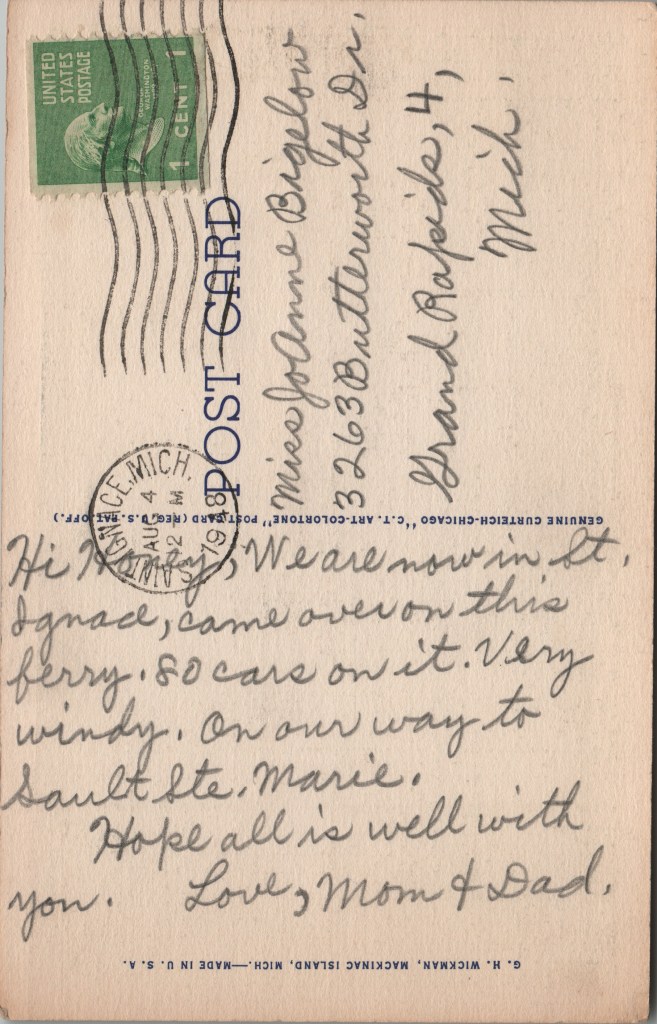 UNITED
STATES
POSTAGE
GEORGE
WASHINGTON
1 CENT 1
POST CARD
SAINT IGNACE, MICH.
AUG 4
12 M
1948
Miss JoAnne Bigelow
3263 Butterworth Dr.
Grand Rapids, 4,
Mich.
GENUINE CURTEICH-CHICAGO "C.T. ART-COLORTONE" POST CARD (REG. U.S. PAT. OFF.)
Hi , We are now in St.
Ignace, came over on this
ferry. 80 cars on it. Very
windy. On our way to
Sault Ste. Marie.
Hope all is well with
you. Love, Mom & Dad.
G. H. WICKMAN, MACKINAC ISLAND, MICH.—MADE IN U. S. A.